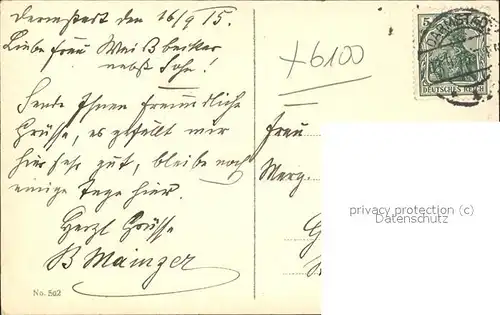 Darmstadt den 16/9 15.
Liebe Frau Weißbecker
nebst Sohn!
Sende Ihnen freundliche
Grüsse, es gefällt mir
hier sehr gut, bleibe noch
einige Tage hier.
Herzl Grüsse
B Mainzer
No. 502
+6100
5
DARMSTADT
DEUTSCHES REICH
Frau
Marg.
privacy protection (c)
Datenschutz